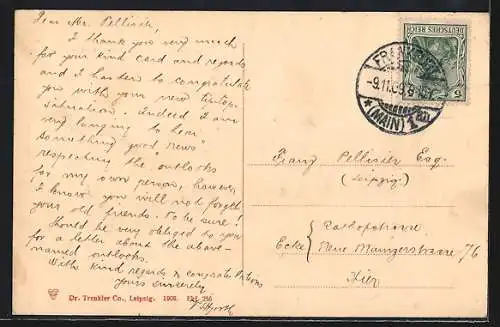 Dear Mr. Pellisier!
I thank you very much
for your kind card and regards
and I hasten to congratulate
you with your new
Indeed I am
very longing to hear
something "good news"
respecting the "outlooks
for my own person, however,
I know you will not forget
your old friends. To be sure!
Should be very obliged to you
for a letter about the above-
named outlooks.
With kind regards & congratulations
Yours sincerely
DEUTSCHES REICH
5
FRANKFURT
-9.11.09.
* (MAIN) 1
Franz Pellisier Esq.
(Leipzig).
Ecke { Neue Mainzerstrasse 76
Hier
Dr. Trenkler Co., Leipzig. 1909.